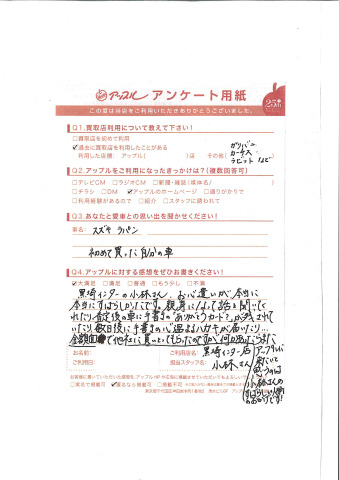 アップル アンケート用紙
25th
この度は当店をご利用いただきありがとうございました。
Q1.買取店利用について教えて下さい！
□買取店を初めて利用
☑過去に買取店を利用したことがある
利用した店舗： アップル( )店 その他( ガリバー
カーチス
ラビット など
Q2.アップルをご利用になったきっかけは？(複数回答可)
□テレビCM □ラジオCM □新聞・雑誌(媒体名/ )
□チラシ □DM ☑アップルのホームページ □通りがかりで
□利用経験があるので □紹介 □スタッフに誘われて
Q3.あなたと愛車との思い出を聞かせください！
車名： スズキ ラパン
初めて買った自分の車
Q4.アップルに対する感想をぜひお書きください！
☑大満足 □満足 □普通 □もう少し □不満
黒埼インターの小林さん、お心遣いが本当に
本当にすばらしかったです。親身になって話を聞いてく
れたり、査定後の車に手書きの"ありがとうカード"が残されて
いたり、数日後に手書きの心温まるハガキが届いたり…
金額面で他社に買っていただいたのですが、何かあったらまた
アップルに
来たいと
思うのは
小林さんの
すばらしい人柄の
おかげです!
お名前：
ご利用日：
ご利用店名： 黒埼インター店
担当スタッフ名： 小林さん
□実名で掲載可 ☑匿名なら掲載可 □掲載不可